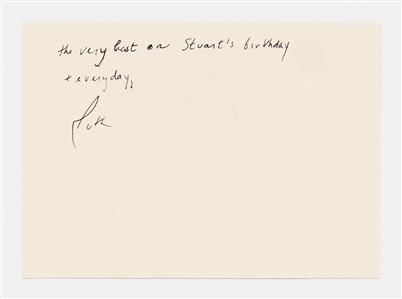 the very best on Stuart's birthday
+ everyday,